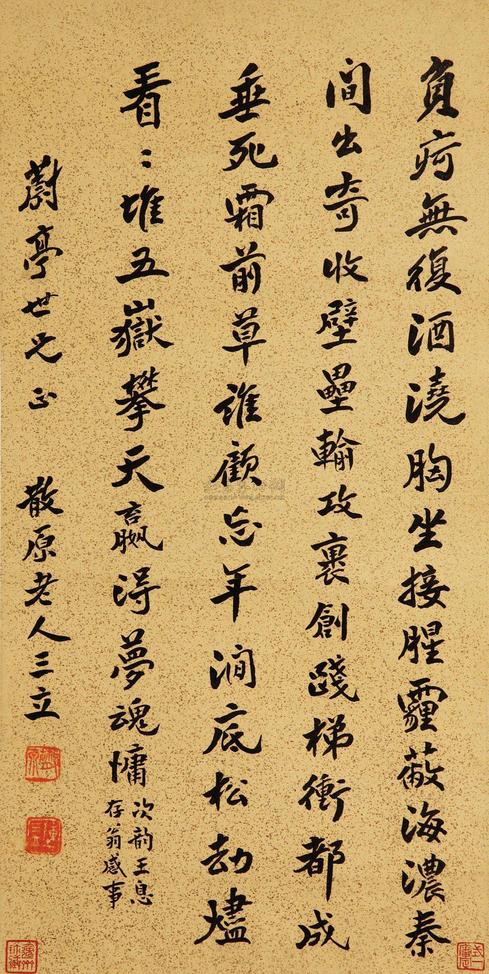 負痾無復酒澆胸坐接腥霾蔽海濃秦
間出奇收壁壘輸攻裹創踐梯衝都成
垂死霜前草誰顧忘年澗底松劫燼
看〻堆五嶽攀天嬴得夢魂慵
次韵王息
存翁感事
蔚亭世兄正 散原老人三立